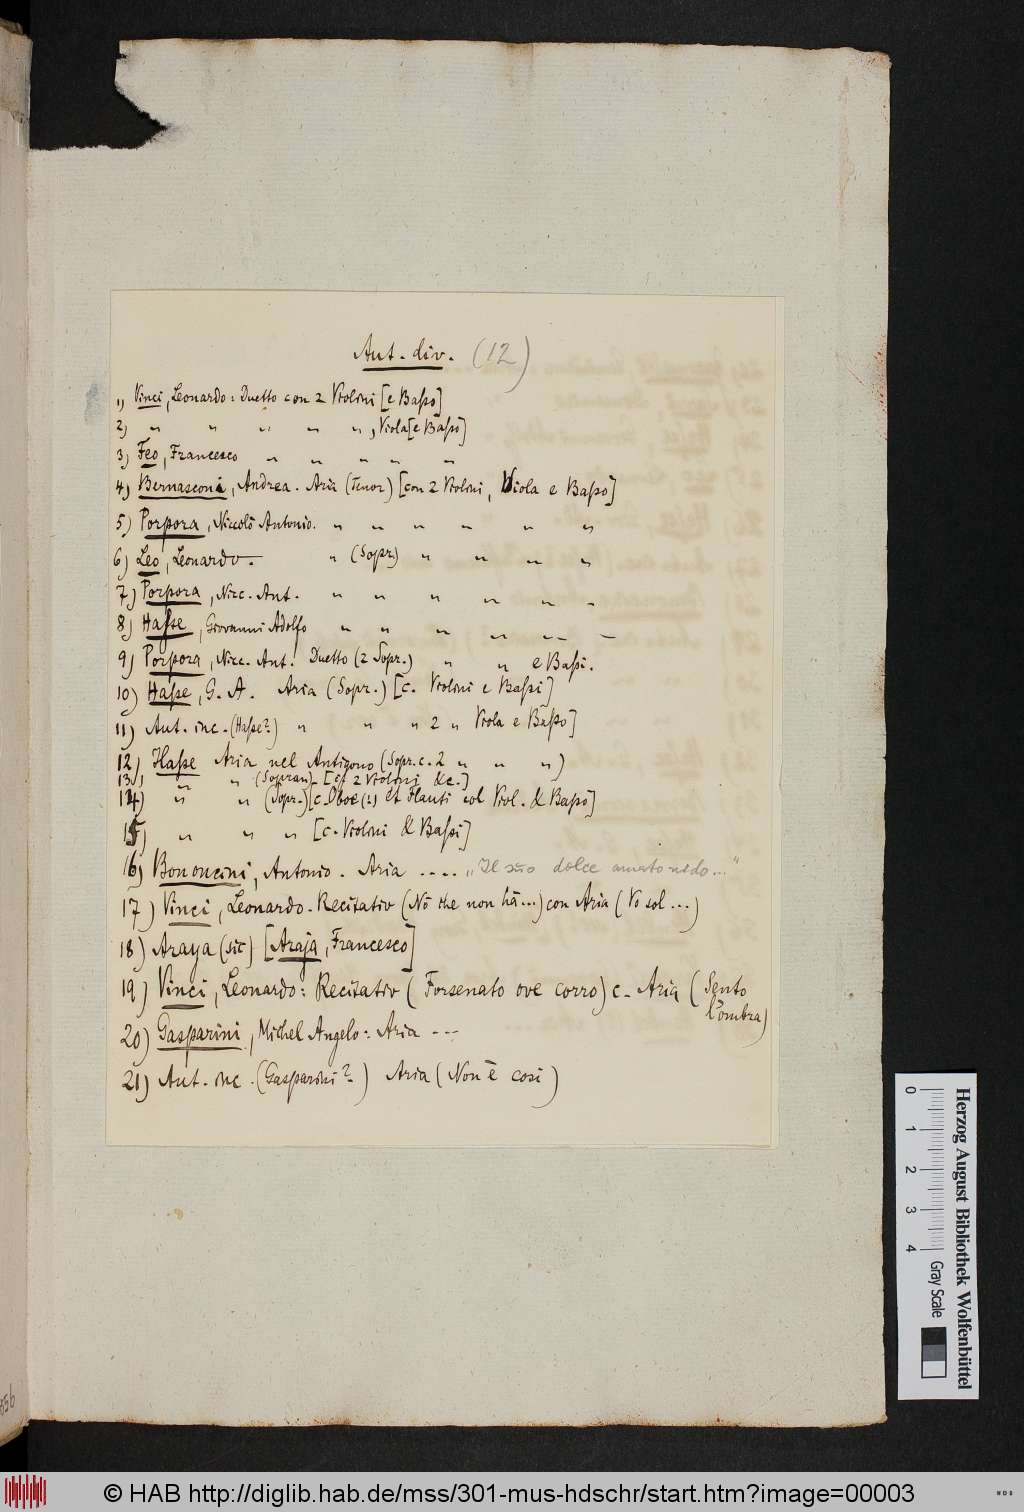 Aut. div. (12)
1) Vinci, Leonardo: Duetto con 2 Violini [e Baßo]
2) " " " " ", Viola [e Baßo]
3) Feo, Francesco " " " " "
4) Bernasconi, Andrea. Aria (Tenor) [con 2 Violini, Viola e Baßo]
5) Porpora, Niccolò Antonio. " " " " " "
6) Leo, Leonardo. " (Sopr) " " " "
7) Porpora, Nicc. Ant. " " " " " "
8) Haße, Giovanni Adolfo " " " " " "
9) Porpora, Nicc. Ant. Duetto (2 Sopr.) " " e Baßi.
10) Haße, G. A. Aria (Sopr.) [c. Violini e Baßi]
11) Aut. inc. (Haße?) " " " 2 " Viola e Baßo]
12) Haße Aria nel Antigono (Sopr. c. 2 " " ")
13) " " (Sopran) [c. 2 Violini &c.]
14) " " (Sopr.) [c. Oboe (2) et Flauti col Viol. & Baßo]
15) " " " [c. Violini & Baßi]
16) Bononcini, Antonio. Aria .... "Il suo dolce amato nido..."
17) Vinci, Leonardo. Recitativ (Nò che non hà...) con Aria (Vo sol...)
18) Araya (sic) [Araja, Francesco]
19) Vinci, Leonardo: Recitativ (Forsenato ove corro) c. Aria (Sento
l'ombra)
20) Gasparini, Michel Angelo: Aria ---
21) Aut. inc. (Gasparini?) Aria (Non è così)
Herzog August Bibliothek Wolfenbüttel
0 1 2 3 4 Gray Scale
© HAB http://diglib.hab.de/mss/301-mus-hdschr/start.htm?image=00003